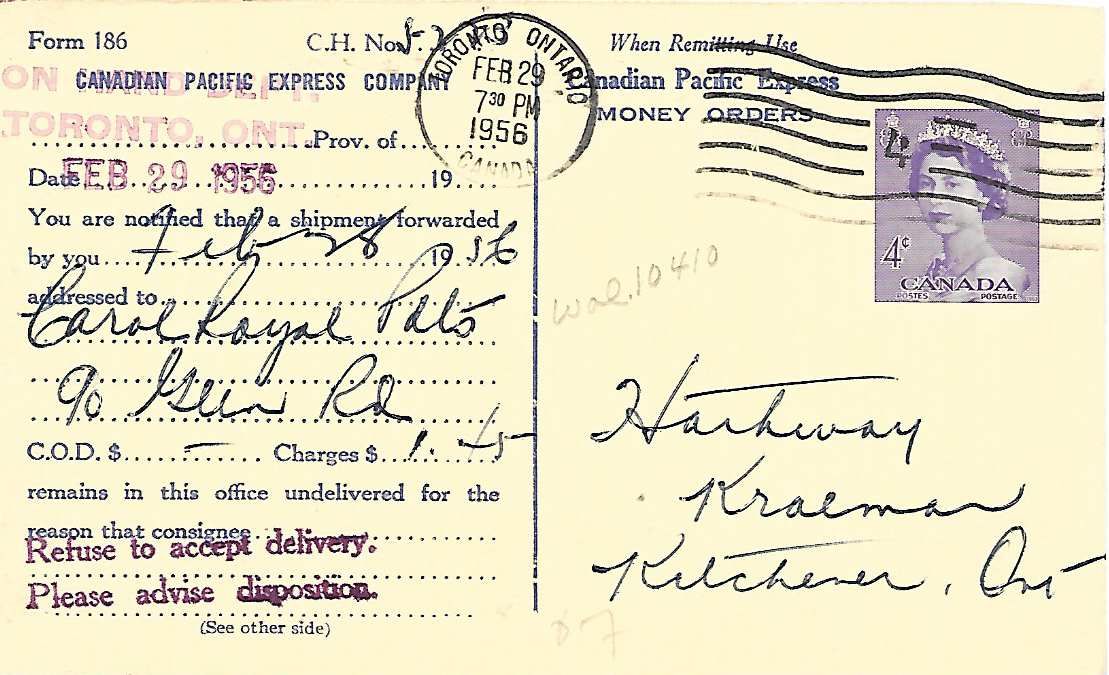 Form 186 C.H. No.
ON HAND DEPT.
CANADIAN PACIFIC EXPRESS COMPANY
TORONTO, ONT. Prov. of
Date FEB 29 1956 19
You are notified that a shipment forwarded
by you Feb 28 19 56
addressed to
Carol Royal
90 Glen Rd
C.O.D. $ – Charges $ 1.45
remains in this office undelivered for the
reason that consignee
Refuse to accept delivery.
Please advise disposition.
(See other side)
TORONTO ONTARIO
FEB 29
7 30 PM
1956
CANADA
When Remitting Use
Canadian Pacific Express
MONEY ORDERS
4
4¢
CANADA
POSTES POSTAGE
10410
Hathway
Kraeman
Kitchener, Ont